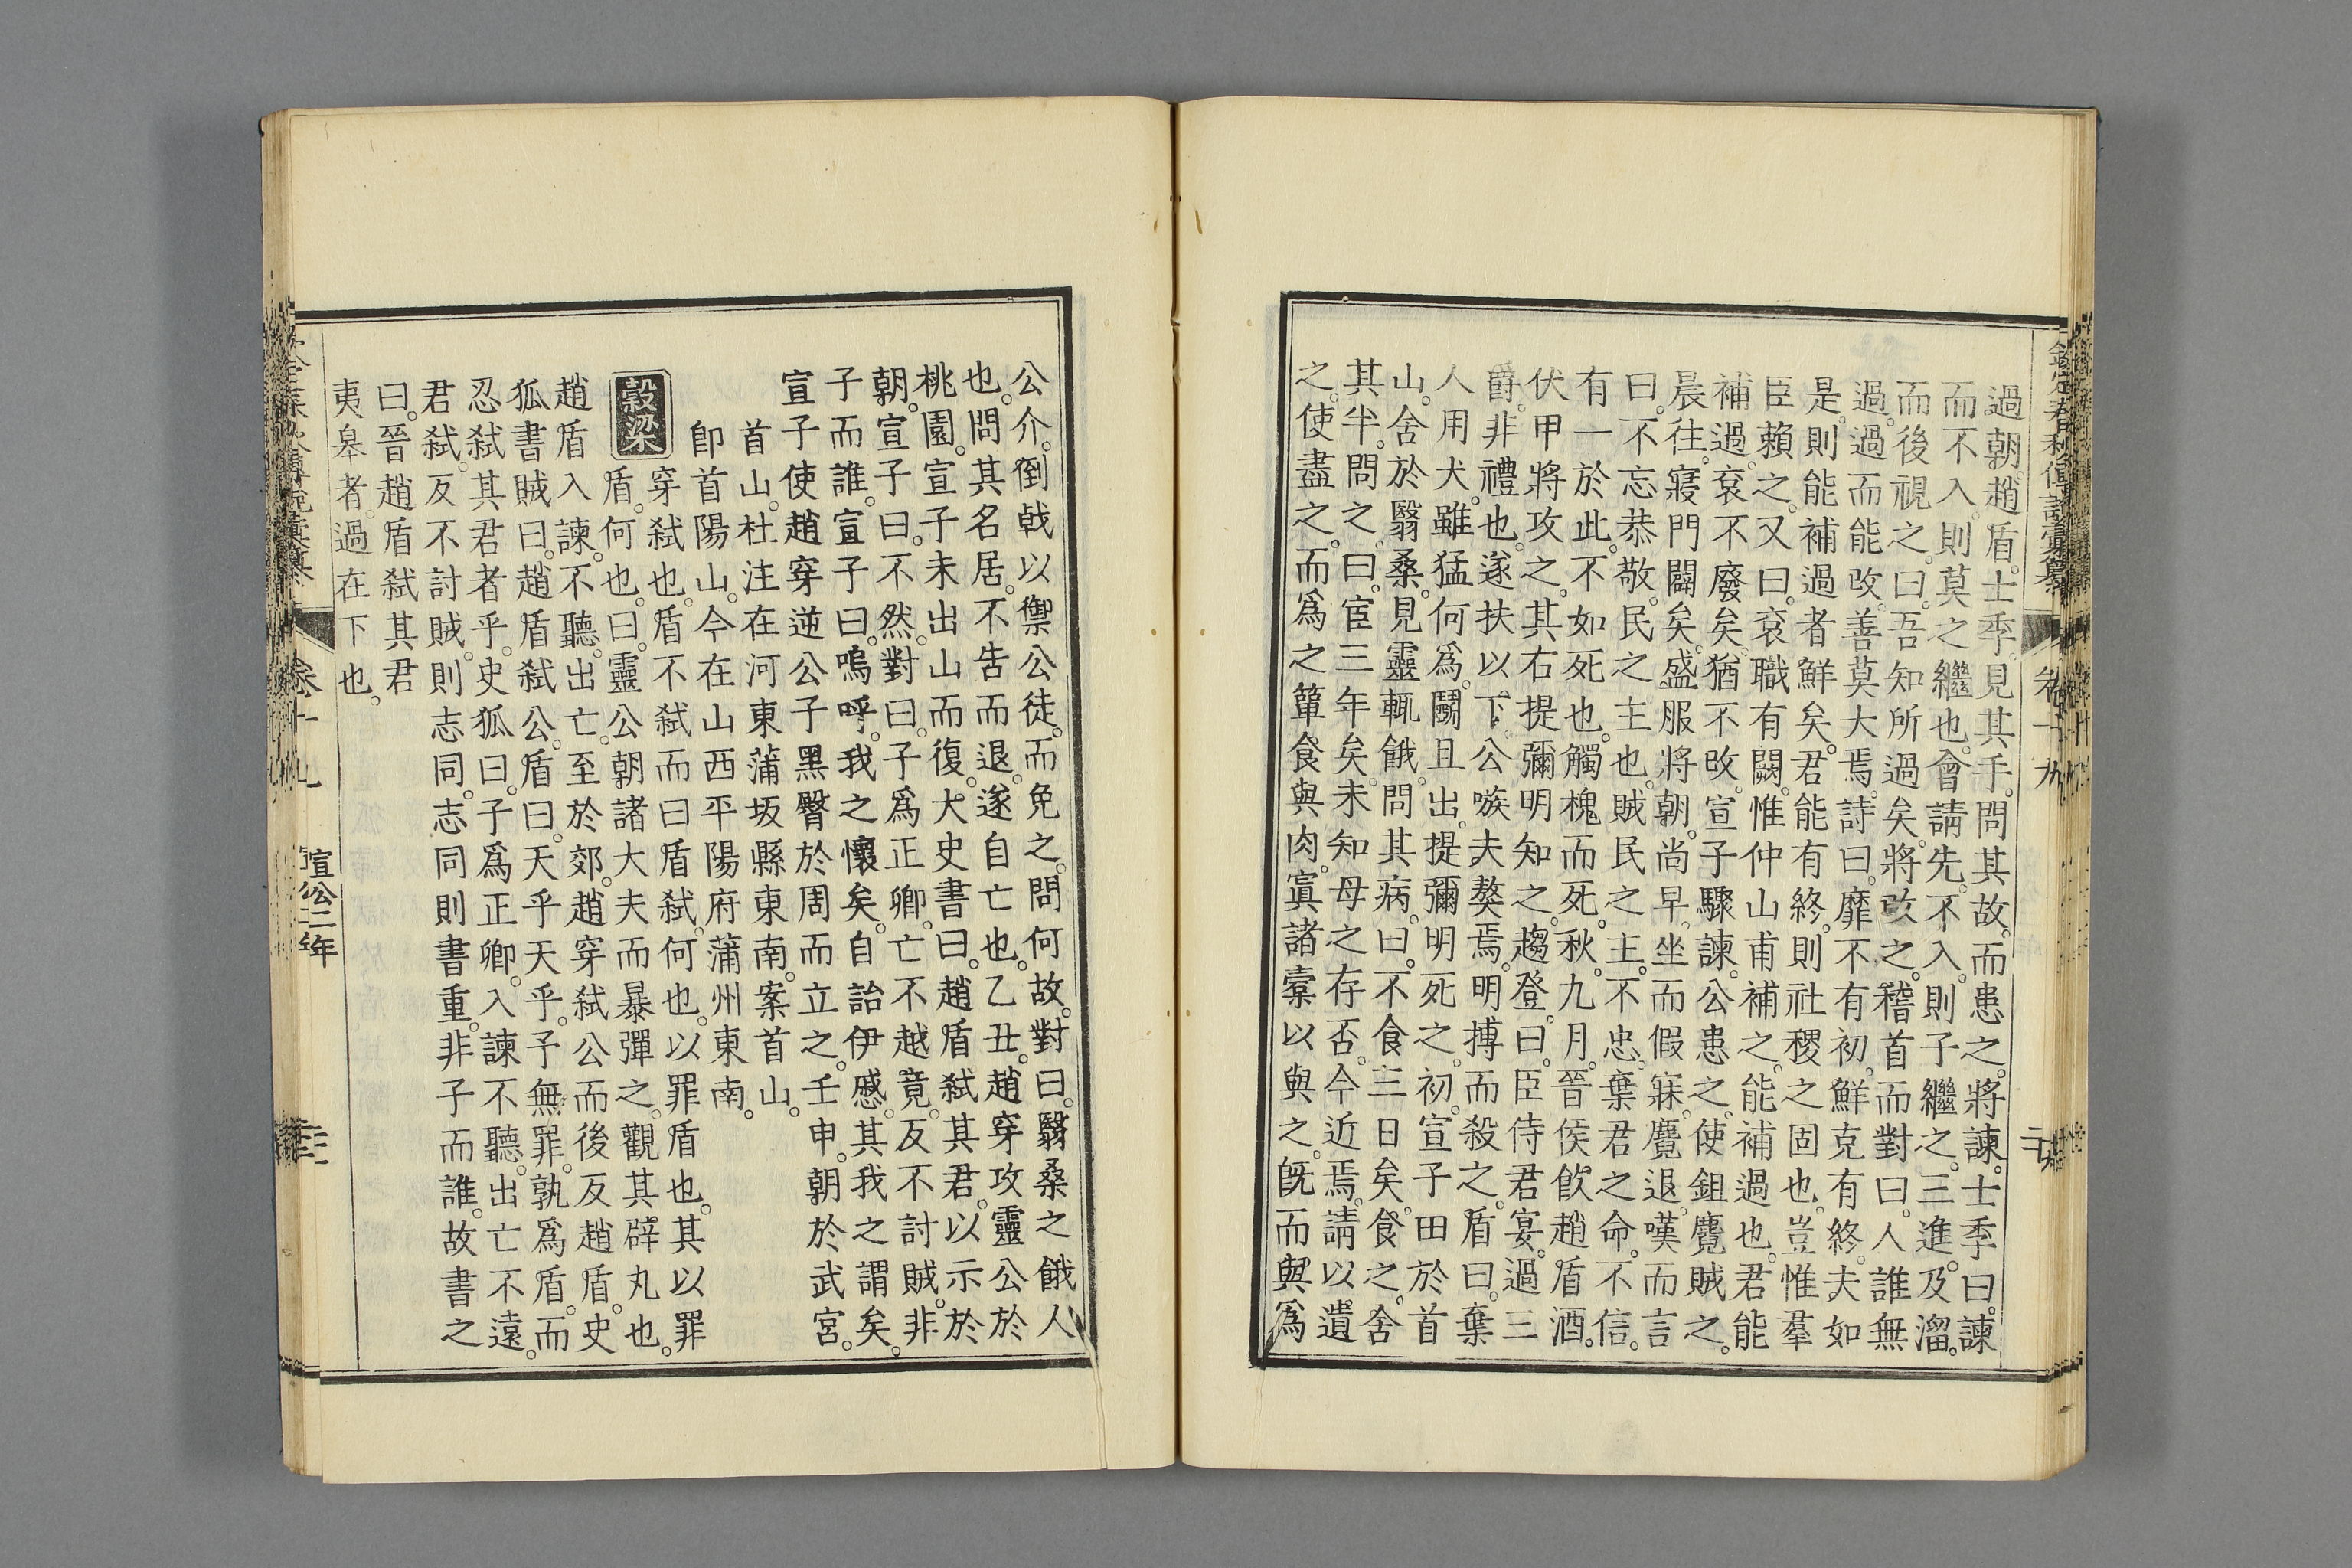 過朝。趙盾。士季。見其手。問其故。而患之。將諫。士季曰。諫
而不入。則莫之繼也。會請先。不入。則子繼之。三進。及溜。
而後視之。曰。吾知所過矣。將改之。稽首而對曰。人誰無
過。過而能改。善莫大焉。詩曰。靡不有初。鮮克有終。夫如
是。則能補過者鮮矣。君能有終。則社稷之固也。豈惟羣
臣賴之。又曰。袞職有闕。惟仲山甫補之。能補過也。君能
補過。袞不廢矣。猶不改。宣子驟諫。公患之。使鉏麑賊之。
晨往。寢門闢矣。盛服將朝。尚早。坐而假寐。麑退。嘆而言
曰。不忘恭敬。民之主也。賊民之主。不忠。棄君之命。不信。
有一於此。不如死也。觸槐而死。秋。九月。晉侯飲趙盾酒。
伏甲將攻之。其右提彌明知之。趨登。曰。臣侍君宴。過三
爵。非禮也。遂扶以下。公嗾夫獒焉。明搏而殺之。盾曰。棄
人用犬。雖猛何爲。鬬且出。提彌明死之。初。宣子田於首
山。舍於翳桑。見靈輒餓。問其病。曰。不食三日矣。食之。舍
其半。問之。曰。宦三年矣。未知母之存否。今近焉。請以遺
之。使盡之。而爲之簞食與肉。寘諸橐以與之。旣而與爲
卷十九
公介。倒戟以禦公徒。而免之。問何故。對曰。翳桑之餓人
也。問其名居。不告而退。遂自亡也。乙丑。趙穿攻靈公於
桃園。宣子未出山而復。大史書曰。趙盾弑其君。以示於
朝。宣子曰。不然。對曰。子爲正卿。亡不越竟。反不討賊。非
子而誰。宣子曰。嗚呼。我之懷矣。自詒伊慼。其我之謂矣。
宣子使趙穿逆公子黑臀於周而立之。壬申。朝於武宮。
首山。杜注在河東蒲坂縣東南。案首山。
卽首陽山。今在山西平陽府蒲州東南。
穀梁 穿弑也。盾不弑而曰盾弑。何也。以罪盾也。其以罪
盾。何也。曰。靈公朝諸大夫而暴彈之。觀其辟丸也。
趙盾入諫。不聽。出亡。至於郊。趙穿弑公而後反趙盾。史
狐書賊曰。趙盾弑公。盾曰。天乎天乎。予無罪。孰爲盾。而
忍弑其君者乎。史狐曰。子爲正卿。入諫不聽。出亡不遠。
君弑。反不討賊。則志同。志同則書重。非子而誰。故書之
曰。晉趙盾弑其君
夷皋者。過在下也。
卷十九 宣公二年